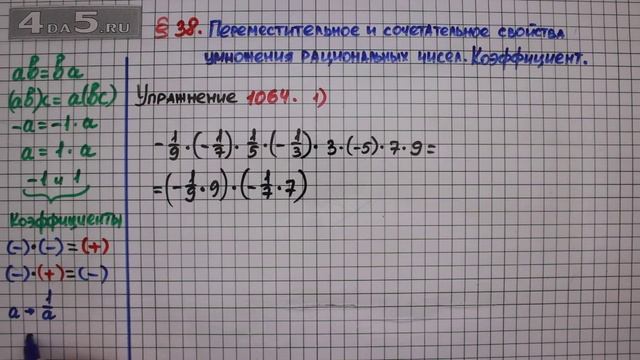 4DA5.RU
§ 38. Переместительное и сочетательное свойства
умножения рациональных чисел. Коэффициент.
ab = ba
(ab)c = a(bc)
-a = -1 · a
a = 1 · a
-1 и 1
Коэффициенты
(-)·(-) = (+)
(-)·(+) = (-)
a → 1/a
Упражнение 1064. 1)
-1/9 · (-1/7) · 1/5 · (-1/3) · 3 · (-5) · 7 · 9 =
= (-1/9 · 9) · (-1/7 · 7)